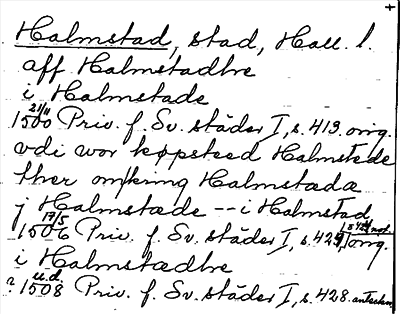 +
Halmstad, stad, Hall. l.
aff Halmstadhe
i Halmstade
21/11
1500 Priv. f. Sv. städer I, s. 413. orig.
vdi wor køpsteed Halmstede
ther omkring Halmstada
j Halmstæde -- i Halmstad
17/5
1506 Priv. f. Sv. städer I, s. 424, orig.
i Halmstædhe
u.d.
? 1508 Priv. f. Sv. städer I, s. 428. anteckn.